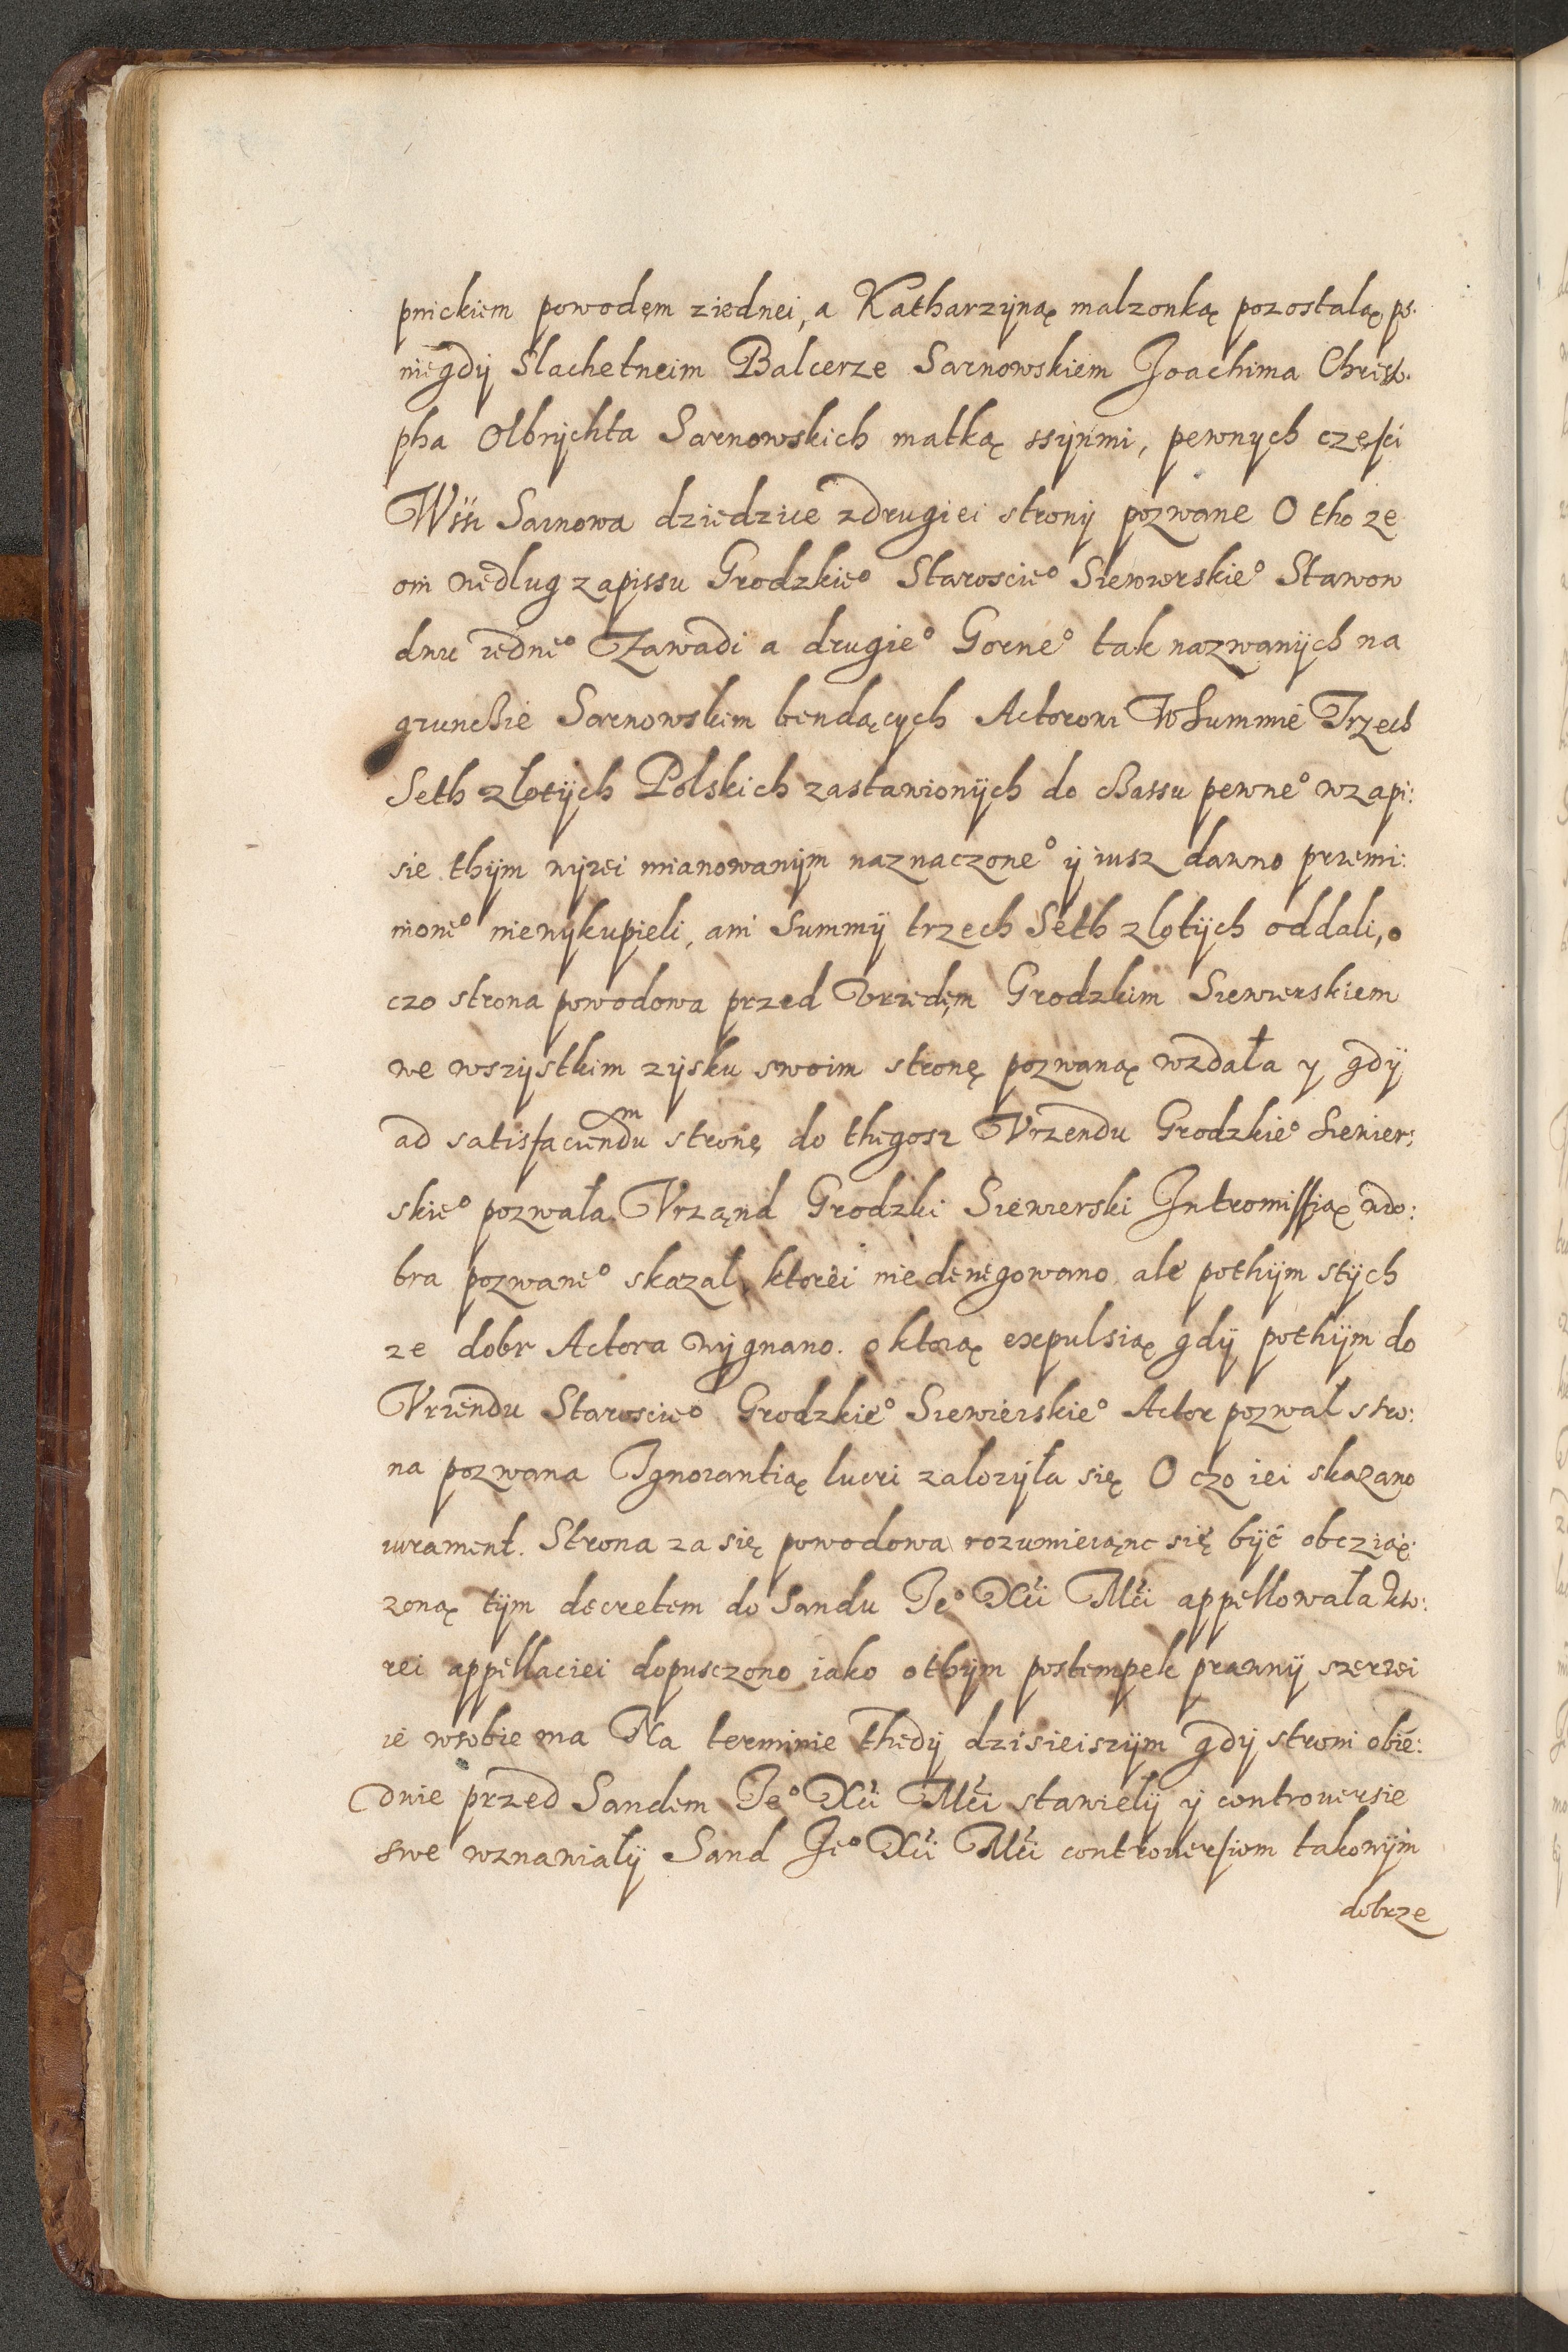 pnickiem powodęm ziednei, a Katharzijnąę malzonkąę pozostaląę ps.
niegdij Slachetneim Balcerze Sarnowskiem Joachima Christo.
pha Olbrijchta Sarnowskich matkąę ssijnmi, pewnych częsci
Wsi Sarnowa dziedzice zdrugiei stronij pozwane O tho ze
oni wedlug zapissu Grodzkieo Staroscieo Siewierskieo Stawow
dwu iedneo Zawadi a drugieo Gorneo tak nazwanijch na
gruncsie Sarnowskim bendących Actorowi W Summie Trzech
Seth zlotijch Polskich zastawionijch do csassu pewneo wzapi:
sie thijm wijzei mianowanijm naznaczoneo ij iusz dawno przemi:
nioneo niewykupieli, ani Summij trzech Seth zlotijch oddali, o
czo strona powodowa przed Vrzedęm Grodzkim Siewierskiem
we wszijstkim zijsku swoim stronę pozwanąę wzdała y gdij
ad satisfaciendum stronę do thegosz Vrzendu Grodzkieo Siewier:
skieo pozwała Vrząnd Grodzki Siewierski Intromissiąę wdo:
bra pozwaneo skazał, ktorei niedenegowano ale pothijm stijch
ze dobr Actora wijgnano. o ktorąę expulsiąę gdij pothijm do
Vrzendu Staroscieo Grodzkieo Siewierskieo Actor pozwał stro:
na pozwana Ignorantiąę lucri założijła się O czo iei skazano
iurament. Strona za się powodowa rozumieiąnc się bijć obcziąę:
zonąę tijm decretem do Sandu Jeo Xci Mci appellowała kto:
rei appellaciei dopusczono iako othijm postempek prawnij szerzei
ie wsobie ma Na terminie thedij dzisieiszijm gdij stroni obie:
dwie przed Sandem Jeo Xci Mci stawielij y controuersie
swe wznawiałij Sand Jeo Xci Mci controuersiom takowijm
dobrze